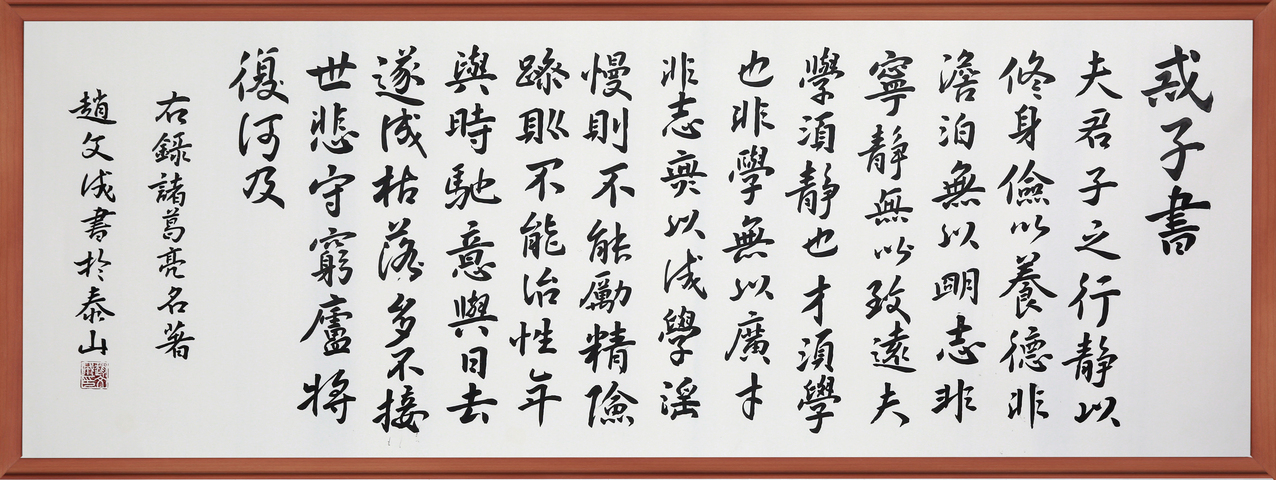 戒子書
夫君子之行静以
修身儉以養德非
澹泊無以明志非
寧静無以致遠夫
學須静也才須學
也非學無以廣才
非志無以成學滛
慢則不能勵精險
躁則不能治性年
與時馳意與日去
遂成枯落多不接
世悲守窮廬將
復何及
右錄諸葛亮名著
趙文成書於泰山